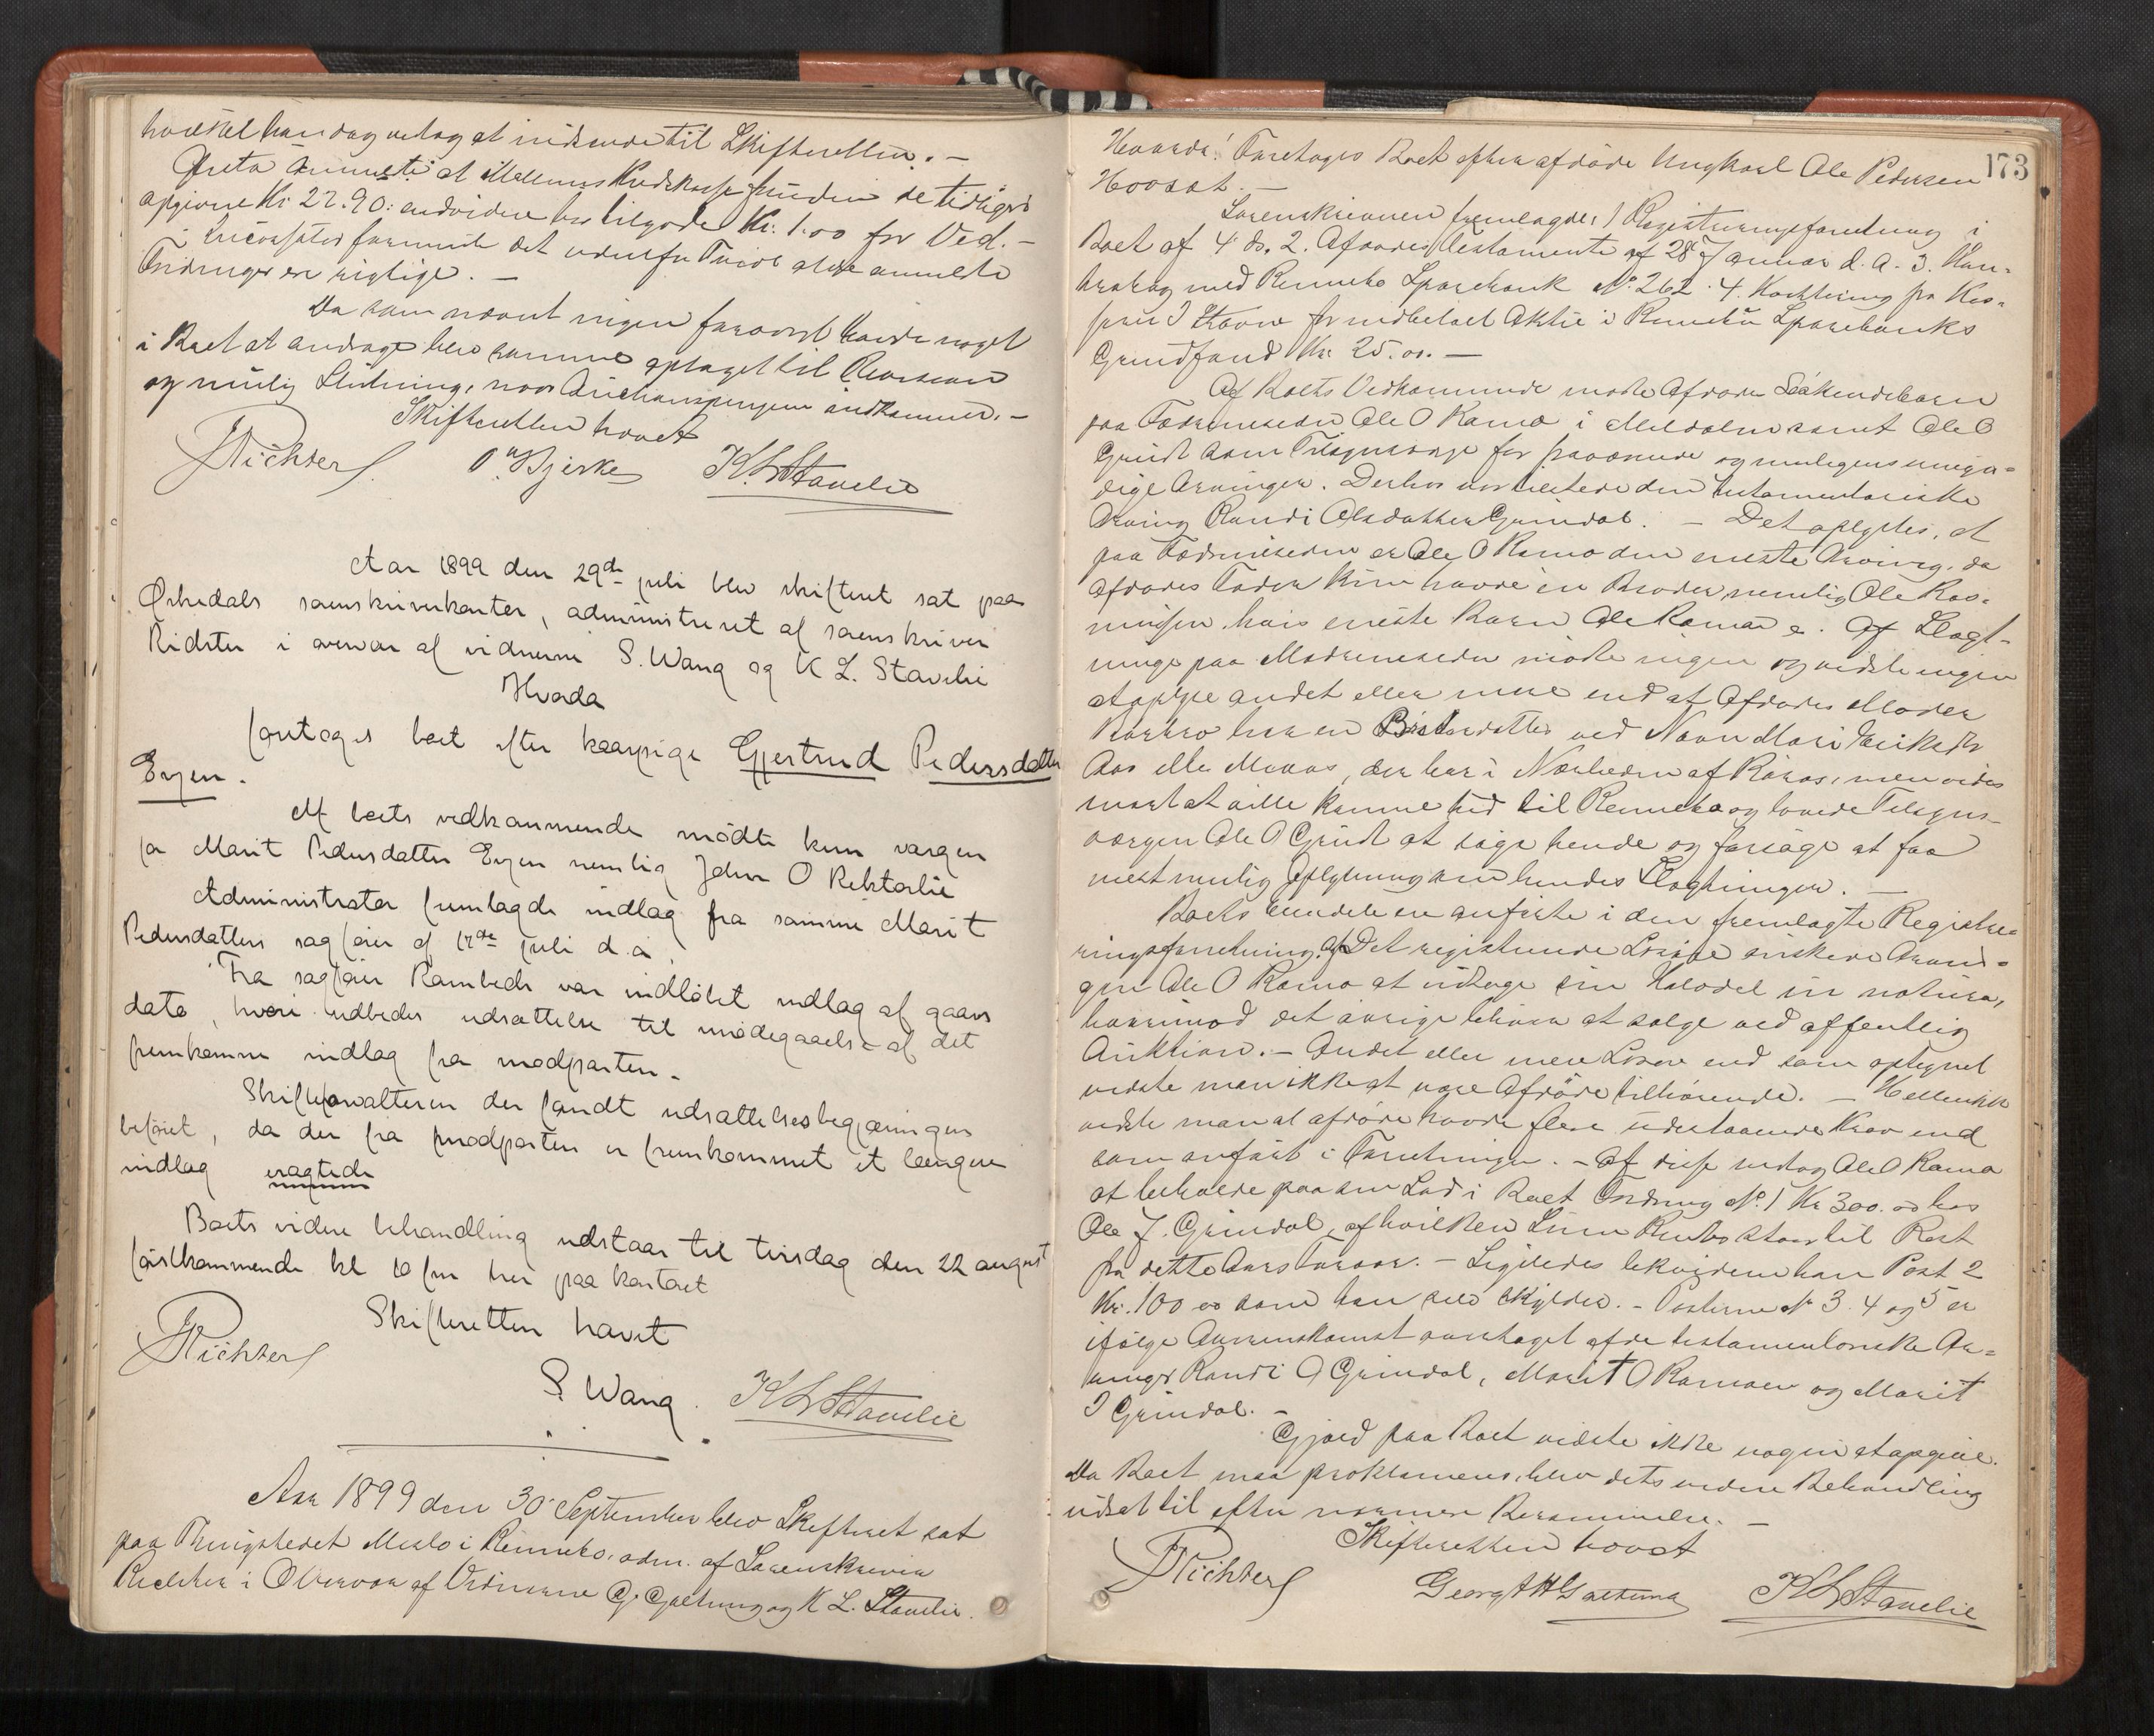 hvilket han dog vedtog at indsende til Skifteretten. –
Greta anmeldte at Mellemes Kredskasse foruden de tidligere
opgivne Kr. 22.90: endvidere har tilgode Kr. 1.00 for Ved. –
Incassator formente det udenfor Tvivl at de anmeldte
Fordringer ere rigtige. –
Da som nævnt ingen forøvrigt havde noget
i Boet at andrage blev samme optaget til Revision
og mulig Slutning, naar Auktionspengene indkommer. –
Skifteretten hævet
Richter O. Bjerke K. L. Stavelie
Aar 1899 den 29de juli blev skifteret sat paa
Orkedals sorenskriverkontor, administreret af sorenskriver
Richter i overvær af vidnerne S. Wang og K L. Stavelie
Hvorda
foretoges boet efter kaarpige Gjertrud Pedersdatter
Eyen.
Af boets vedkommende mødte kun værgen
for Marit Pedersdatter Eyen nemlig John O Rekstølie
Administrator fremlagde indlag fra samme Marit
Pedersdatters sagfører af 17de juli d.a.
Fra sagfører Rambech var indløbet indlag af gaars
dato, hvori udbedes udsættelse til imødegaaelse af det
fremkomne indlag fra modparten.
Skifteforvalteren der fandt udsættelsesbegjæringen
beføiet, da der fra modparten er fremkommet et længere
indlag eragtede
Boets videre behandling udstaar til tirsdag den 22 august
førstkommende kl 10 fm her paa kontoret
Skifteretten hævet
Richter
S. Wang. K L Stavelie
Aar 1899 den 30 September blev Skifteret sat
paa Thingstedet Meslo i Rennebo, adm. af Sorenskriver
Richter i Overvær af Vidnerne G. Galtung og K L. Stavelie.
173
Hvorda! Foretoges Boet efter afdøde Ungkarl Ole Pedersen
Hoosat. –
Sorenskriveren fremlagde: 1 Registreringsforretning i
Boet af 4 ds. 2. Afdødes Testamente af 28 Januar d. A. 3. Kon-
trabog med Rennebo Sparebank No. 262. 4. Kvittering fra Kas-
serer J Havne for indbetalt Aktie i Rennebu Sparebanks
Grundfond Kr. 25.00. –
Af Boets Vedkommende mødte Afdødes Søskendebarn
paa Fædrenesiden Ole O Ramo i Meldalen samt Ole O
Grindt som Tilsynsværge for fraværende og muligens umyn-
dige Arvinger. Derhos var tilstede den testamentariske
Arving Randi Olsdatter Grindal. – Det oplystes, at
paa Fædrenesiden er Ole O Ramo den eneste Arving, da
Afdødes Fader kun havde en Broder nemlig Ole Ras-
mussen, hvis eneste Barn Ole Ramo er. Af Slægt-
ninge paa Mødrenesiden mødte ingen og vidste ingen
at opgive andet eller mere end at Afdødes Moder
Barbro har en Brodersdatter ved Navn Mari Eriksdtr
Aas eller Moaas, der bor i Nærheden af Røros, men vides
snart at ville komme hid til Rennebo og lovede Tilsyns-
værgen Ole O Grindt at søge hende og forsøge at faa
mest mulig Oplysning om hendes Slægtninger. –
Boets Eiendele ere anførte i den fremlagte Registre-
ringsforretning. Af Det registrerede Løsøre ønskede Arvin-
gen Ole O Ramo at udtage sin Halvdel in natura,
hvorimod det øvrige blives at sælge ved offentlig
Auktion. – Andet eller mere Løsøre end som optegnet
vidste man ikke at være Afdøde tilhørende. – Hellerikke
vidste man at afdøde havde flere udestaaende Krav end
som anført i Forretningen. – Af disse vedtog Ole O Ramo
at beholde paa sin Lod i Boet Fordring No. 1 Kr 300.00 hos
Ole J. Grindal, af hvilken Sum Renter staar til Rest
fra dette Aars Foraar. – Ligeledes likviderer han Post 2
Kr. 100 00 som han selv skylder. – Posterne No 3. 4 og 5 er
ifølge Overenskomst overtaget af de testamentoriske Ar-
vinger Randi O Grindal, Marit O Ramoen og Marit
J Grindal. –
Gjæld paa Boet vidste ikke nogen at opgive.
Da Boet maa proklameres, blev dets videre Behandling
udsat til efter nærmere Berammelse. –
Skifteretten hævet
Richter Georg A H Galtung K L Stavelie